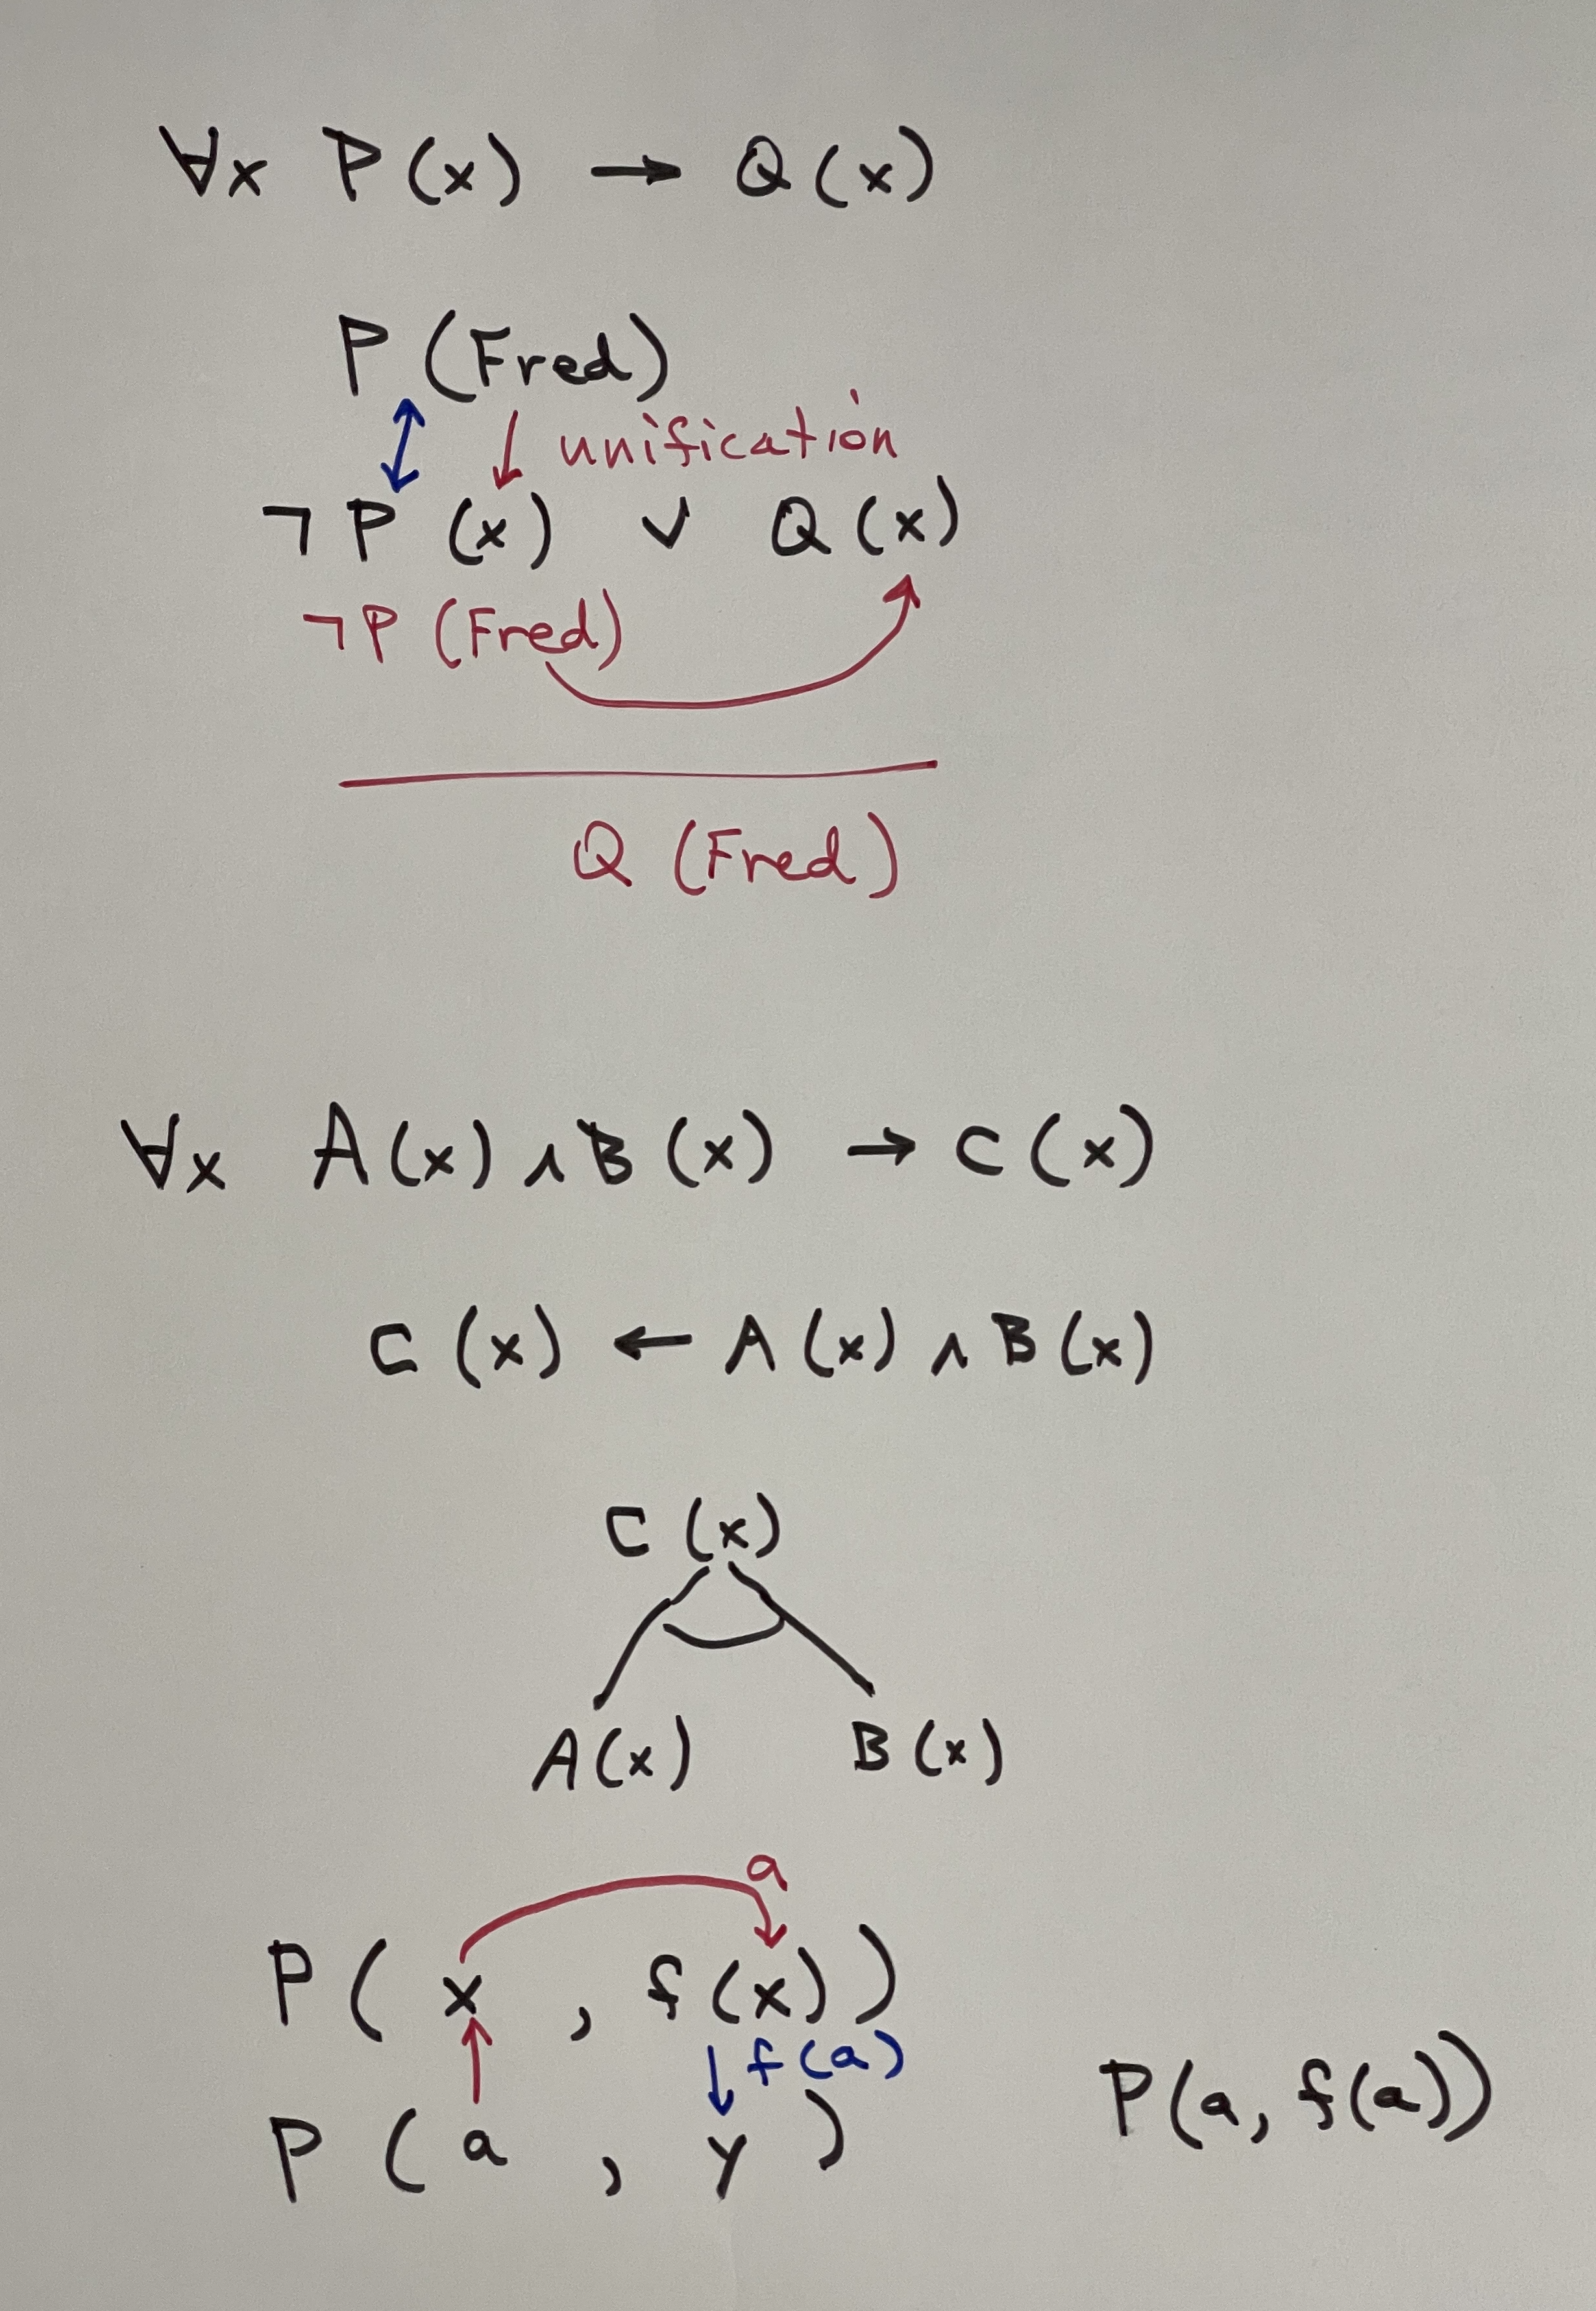 ∀x P(x) → Q(x)
P(Fred)
unification
¬P(x) ∨ Q(x)
¬P(Fred)
Q(Fred)
∀x A(x) ∧ B(x) → C(x)
C(x) ← A(x) ∧ B(x)
C(x)
A(x) B(x)
a
P(x, f(x))
f(a)
P(a, y) P(a, f(a))